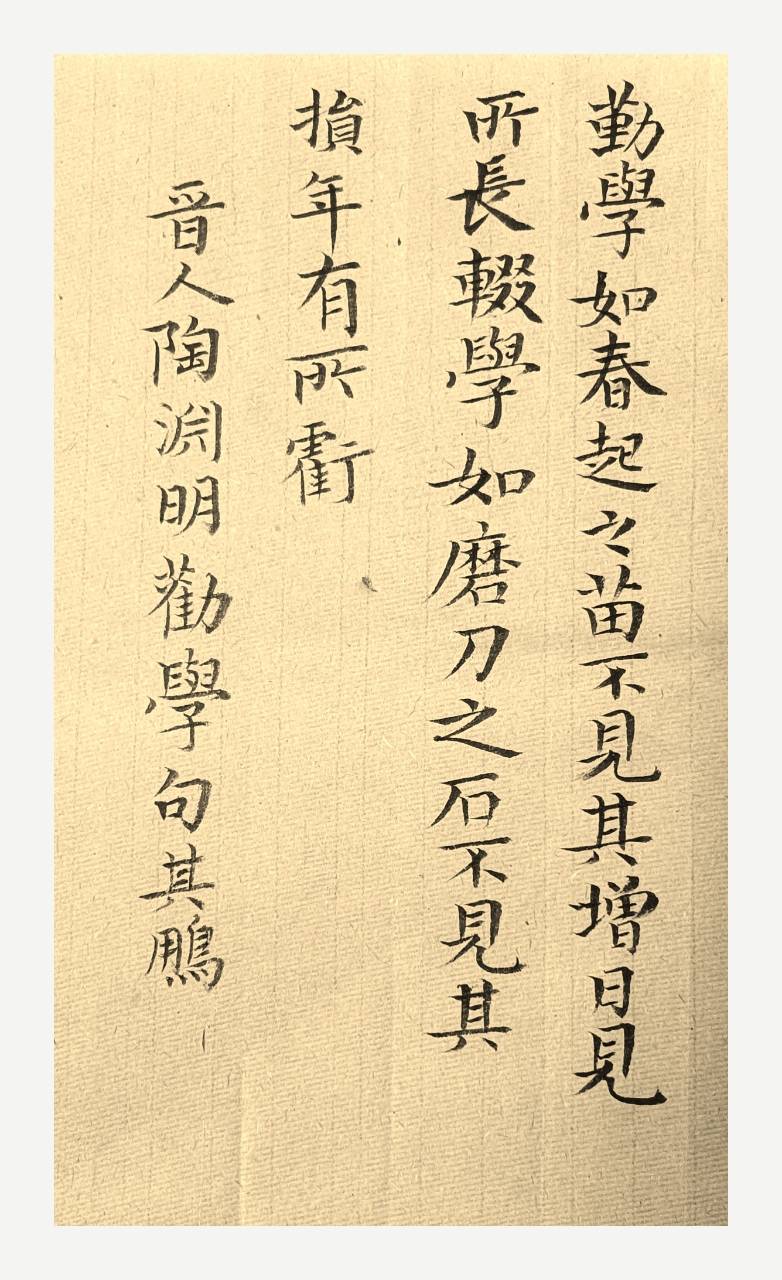 勤學如春起之苗不見其增日見
所長輟學如磨刀之石不見其
損年有所虧
晉人陶淵明勸學句其鵬